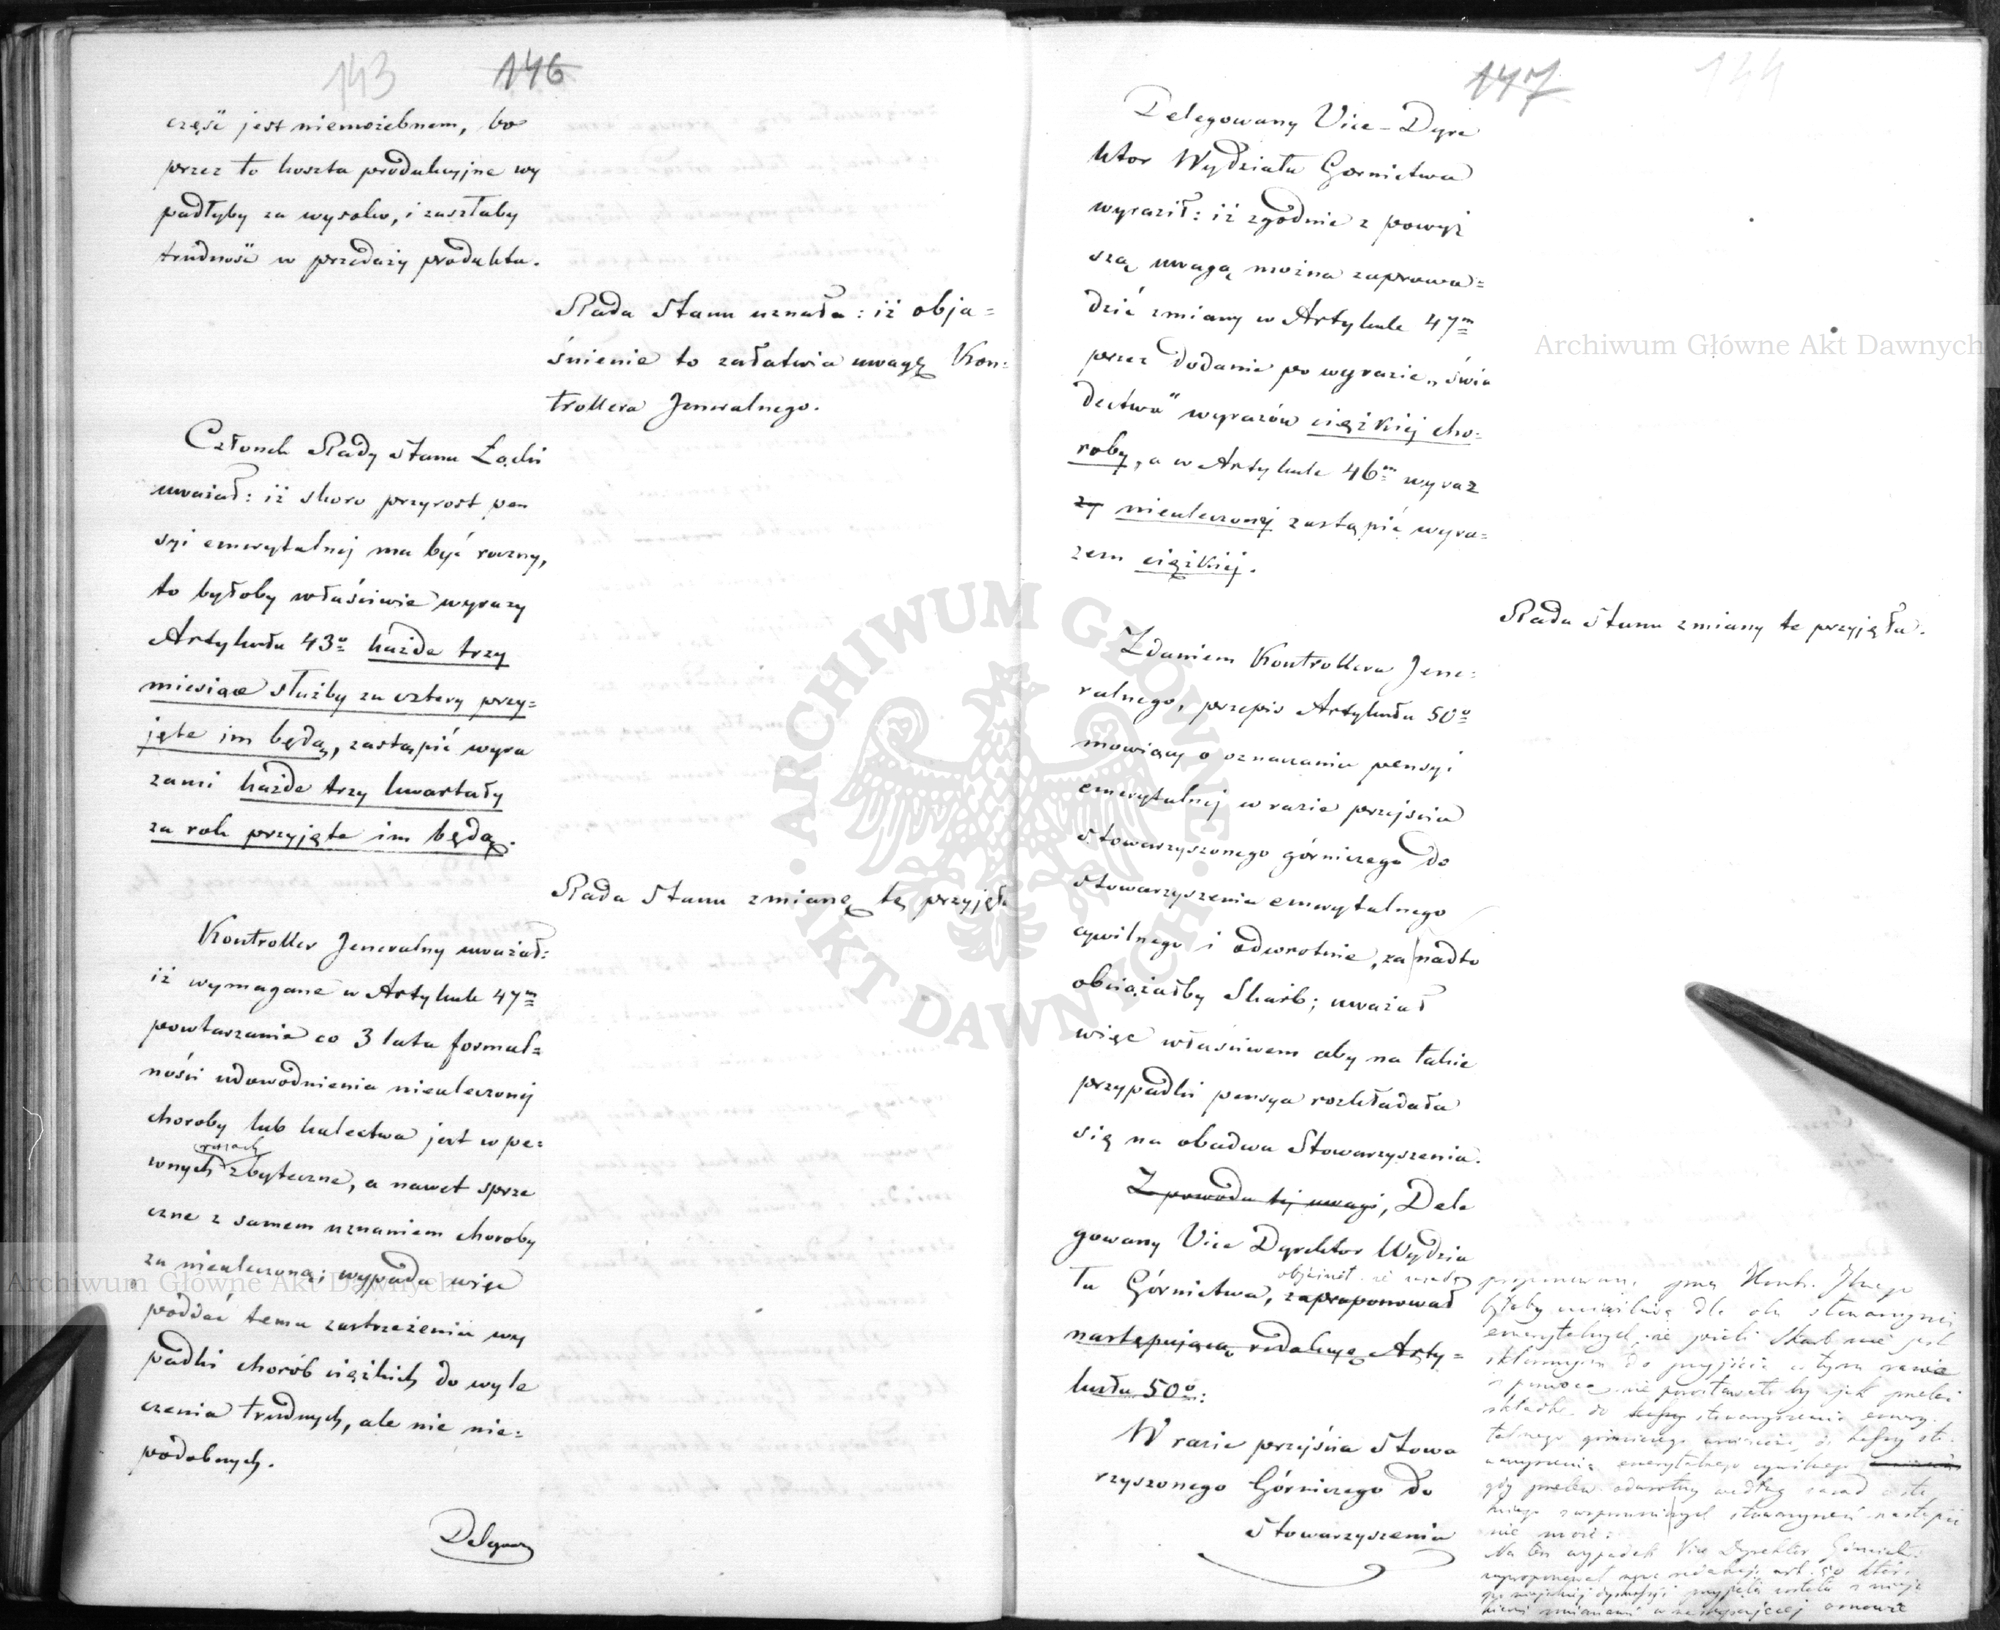 143 146
część jest niemożebnem, bo
przez to koszta produkcyjne wy
padłyby za wysoko, i zaszłaby
trudność w przedaży produktu.
Rada Stanu uznała: iż obja=
śnienie to załatwia uwagę Kon=
trollera Jeneralnego.
Członek Rady Stanu Łęcki
uważał: iż skoro przyrost pen
syi emerytalnej ma być roczny,
to byłoby właściwie wyrazy
Artykułu 43º każde trzy
miesiące służby za cztery przy=
jęte im będą, zastąpić wyra
zami każde trzy kwartały
za rok przyjęte im będą.
Rada Stanu zmianę tę przyjęła
Kontroller Jeneralny uważał:
iż wymagane w Artykule 47m
powtarzanie co 3 lata formal=
ności udowodnienia nieuleczonej
choroby lub kalectwa jest w pe=
razach
wnych zbyteczne, a nawet sprze
czne z samem uznaniem choroby
za nieuleczoną; wypada więc
poddać temu zastrzeżeniu wy
padki chorób ciężkich do wyle
czenia trudnych, ale nie nie=
podobnych.
Delegowany
147 144
Delegowany Vice-Dyre
ktor Wydziału Gornictwa
wyraził: iż zgodnie z powyż
szą uwagą można zaprowa=
dzić zmiany w Artykule 47m
przez dodanie po wyrazie „świa
dectwa" wyrazów ciężkiej cho=
roby, a w Artykule 46m wyraz
zy nieuleczonej zastąpić wyra=
zem ciężkiej.
Rada Stanu zmiany te przyjęła.
Zdaniem Kontrollera Jene=
ralnego, przepis Artykułu 50º
mowiący o oznaczaniu pensyi
emerytalnej w razie przejścia
stowarzyszonego górniczego do
stowarzyszenia emerytalnego
cywilnego i odwrotnie, za nadto
obciążałby Skarb; uważał
więc właściwem aby na takie
przypadki pensya rozkładała
się na obadwa Stowarzyszenia.
Z powodu tej uwagi, Dele
gowany Vice Dyrektor Wydzia
objaśnił, że zasada
łu Górnictwa, zaproponował
następującą redakcyę Arty=
kułu 50º:
W razie przejścia Stowa
rzyszonego Górniczego do
Stowarzyszenia
proponowana przez Kontr. Jlnego
byłaby właściwą dla obu stowarzyszeń
emerytalnych, że jeżeli Skarb nie jest
skłonnym do przyjścia w tym razie
z pomocą, nie pozostawało by jak przelać
składki do kassy stowarzyszenia emery
talnego górniczego do kassy sto
warzyszenia emerytalnego cywilnego
gdy przelew odwrotny według zasad
wspomnionych stowarzyszeń nastąpić
nie może:
Na ten wypadek Vice Dyrektor Górnictwa
zaproponował redakcyę art. 50 która
po dyskussyi przyjętą została z
zmianami w następującej osnowie